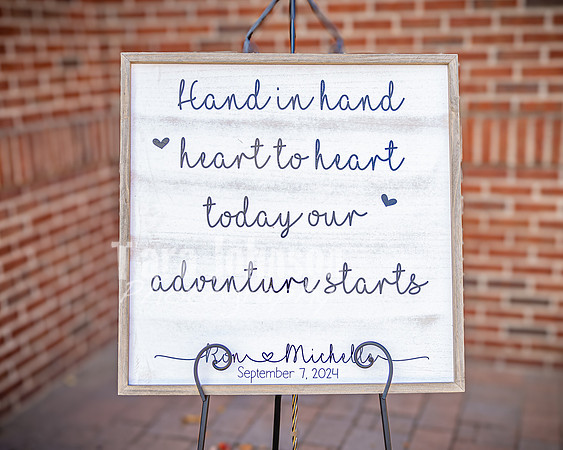 Hand in hand
heart to heart
today our
adventure starts
Michelle
September 7, 2024